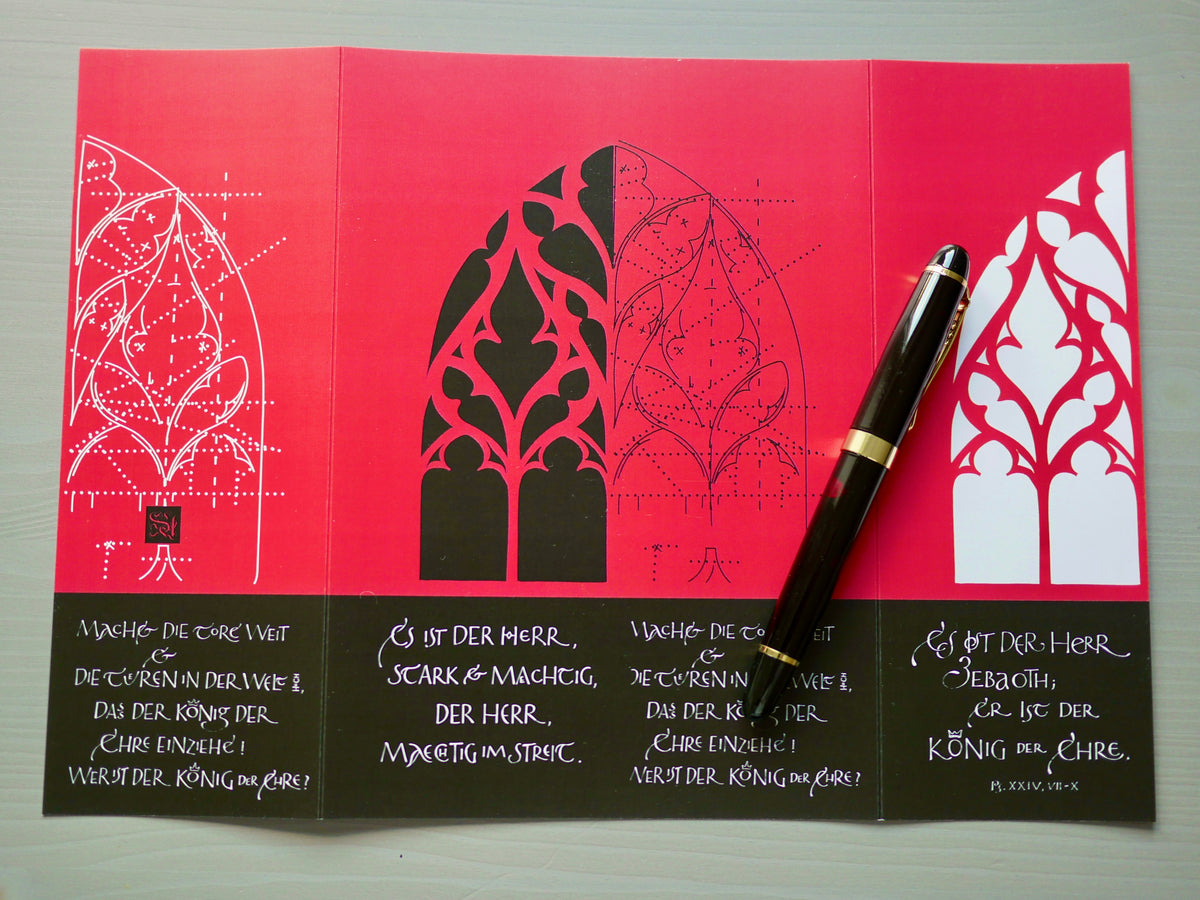 MACHET DIE TORE WEIT
&
DIE TUEREN IN DER WELT
DAS DER KÖNIG DER
EHRE EINZIEHE!
WER IST DER KÖNIG DER EHRE?
ES IST DER HERR,
STARK & MACHTIG,
DER HERR,
MAECHTIG IM STREIT.
DIE
&
IN DER WELT
DAS DER
EHRE EINZIEHE!
WER IST DER KÖNIG DER EHRE?
ES IST DER HERR
ZEBAOTH;
ER IST DER
KÖNIG DER EHRE.
Ps. XXIV, VII-X